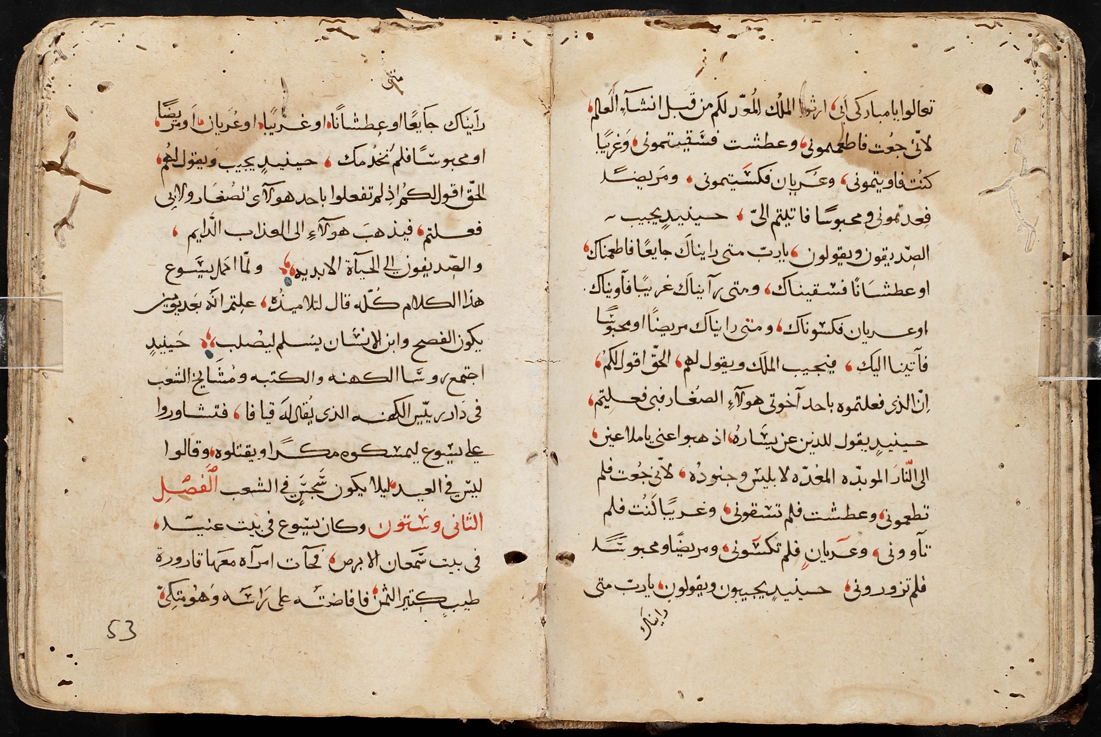 تعالوا يا مباركي ابي، ارثوا الملك المعد لكم من قبل انشآء العالم،
لاني جعت فاطعمتموني، وعطشت فسقيتموني، وغريبًا
كنت فاويتموني، وعريان فكسيتموني، ومريضًا
فعدتموني ومحبوسًا فاتيتم اليّ، حينيدٍ يجيب
الصديقون ويقولون، يا رب متى رايناك جايعًا فاطعمناك،
او عطشانًا فسقيناك، ومتى رآيناك غريبًا فآويناك
او عريان فكسوناك، ومتى رايناك مريضًا او محبوسًا
فاتينا اليك، فيجيب الملك ويقول لهم، الحق اقول لكم،
ان الذى فعلتموه باحد آخوتي هولآء الصغار فبي فعلتم،
حينيدٍ يقول للذين عن يساره، اذهبوا عني يا ملاعين،
الى النار الموبده المعده لابليس وجنوده، لاني جعت فلم
تطعموني، وعطشت فلم تسقوني، وغريبًا كنت فلم
تآووني، وعريان فلم تكسوني، ومريضًا ومحبوسًا
فلم تزوروني، حينيدٍ يجيبون ويقولون، يا رب متى
رايناك
متى
رآيناك جايعًا او عطشانًا، او غريبًا، او عريان، او مريضًا
او محبوسًا فلم نخدمك، حينيدٍ يجيب ويقول لهم،
الحق اقول لكم، اذ لم تفعلوا باحد هولآى الصغار ولا بي
فعلتم، فيذهب هولآء الى العذاب الدايم،
والصديقون الى الحياة الابديه، ولما اكمل يسوع
هذا الكلام كله قال لتلاميذه، علمتم انه بعد يومين
يكون الفصح وابن الانسان يسلم ليصلب، حينيدٍ
اجتمع روسا الكهنه والكتبه ومشايخ الشعب
في دار رييس الكهنه الذى يقال له قيافا، فتشاوروا
على يسوع ليمسكوه مكرًا ويقتلوه، وقالوا
ليس في العيد، ليلا يكون سجس في الشعب الفصل
الثاني وستون وكان يسوع في بيت عنيا،
في بيت سمعان الابرص، فجآت امراه معها قارورة
طيب كثير الثمن، فافاضته على راسه وهو متكى،
53